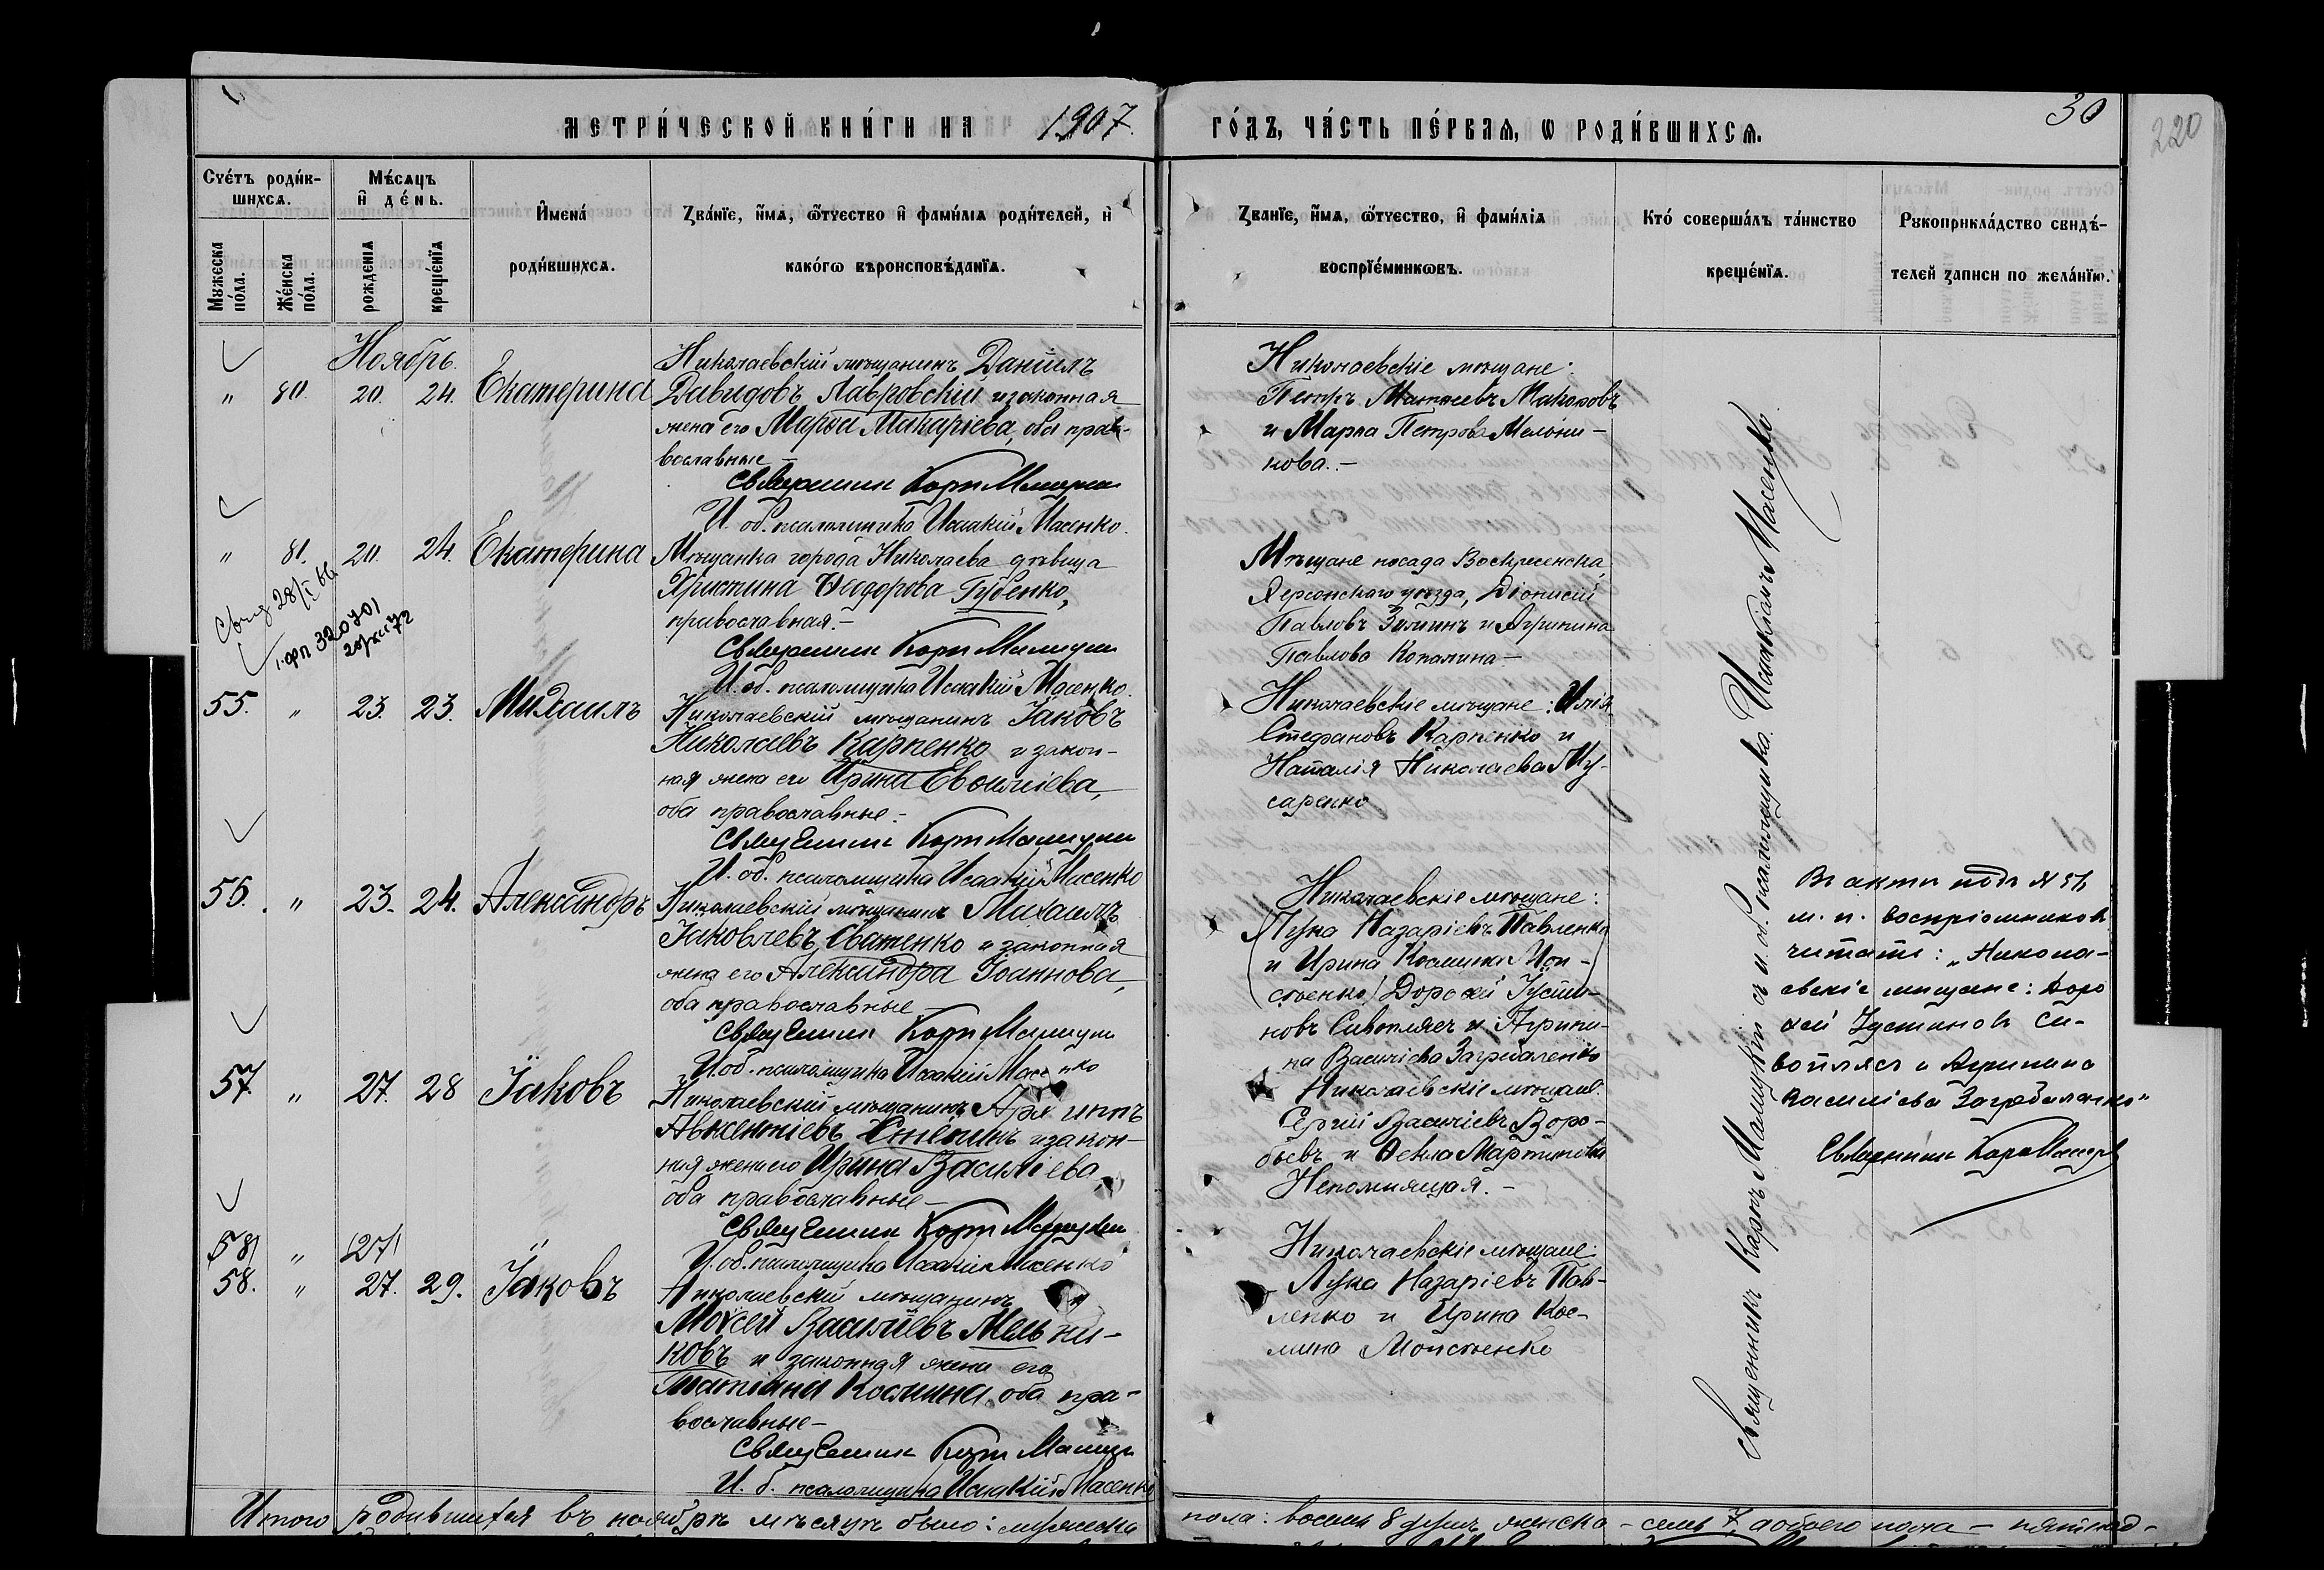 МЕТРИ́ЧЕСКОЙ КНИ́ГИ НА 1907.
ГО́ДЪ, ЧА́СТЬ ПЕ́РВАѦ, Ѡ РОДИ́ВШИХСѦ.
30
220
Счетъ роди́в-
шихсѧ.
Мꙋжеска
по́ла.
Же́нска
по́ла.
Мѣ́сѧцъ
и҆ де́нь.
рожденїѧ
креще́нїѧ
И҆мена́
роди́вшихсѧ.
Зва́нїе, и҆́мѧ, ѻ҆́тчество и҆ фами́лїѧ роди́телей, и҆
како́гѡ вѣроисповѣ́данїѧ.
Зва́нїе, и҆́мѧ, ѻ҆́тчество, и҆ фами́лїѧ
воспрїе́мникѡвъ.
Кто́ соверша́лъ та́инство
креще́нїѧ.
Рꙋкоприкла́дство свидѣ́-
телей записи по жела́нїю.
Ноябрь.
" 80. 20. 24. Екатерина
Николаевскій мѣщанинъ Даніилъ
Давидовъ Лавровскій и законная
жена его Марѳа Макаріева, оба прав-
вославные —
Священникъ Карпъ
И. об. псаломщика Исаакій Масенко.
Николаевскіе мѣщане:
Петръ Матѳеевъ Макаровъ
и Марѳа Петрова Мельни-
кова. —
" 81. 20. 24. Екатерина
Мѣщанка города Николаева дѣвица
Христина Ѳеодорова Губенко,
православная. —
Священникъ Карпъ
И. об. псаломщика Исаакій Масенко.
Мѣщане посада Воскресенска,
Херсонскаго уѣзда, Діонисій
Павловъ Зиминъ и Агрипина
Павлова Копалина —
55. " 23. 23. Михаилъ
Николаевскій мѣщанинъ Іаковъ
Николаевъ Карпенко и закон-
ная жена его Ирина Евѳиміева,
оба православные. —
Священникъ Карпъ
И. об. псаломщика Исаакій Масенко
Николаевскіе мѣщане: Илія
Стефановъ Карпенко и
Наталія Николаева Му-
саренко
56. " 23. 24. Александръ
Николаевскій мѣщанинъ Михаилъ
Іаковлевъ Сватенко и законная
жена его Александра Іоаннова,
оба православные —
Священникъ Карпъ
И. об. псаломщика Исаакій Масенко
Николаевскіе мѣщане:
(Лука Назаріевъ Павленко
и Ирина Космина Мой-
сѣенко) Дороѳей Густи-
новъ Сивоплясъ и Агрипи-
на Василіева Загребаленко
Въ актѣ подъ № 56
м. п. воспріемниковъ
читать: „Никола-
евскіе мѣщане: Доро
ѳей Густиновъ Си-
воплясъ и Агрипина
Василіева Загребаленко"
Священникъ Карпъ
57. " 27. 28 Іаковъ
Николаевскій мѣщанинъ
Авксентіевъ и закон-
ная жена его Ирина Василіева,
оба православные —
Священникъ Карпъ
И. об. псаломщика Исаакій Масенко
Николаевскіе мѣщане:
Сергій Василіевъ Воро-
бьевъ и Ѳекла Мартинова
Непомнящая. —
58 " 27
58. " 27. 29. Іаковъ
Николаевскій мѣщанинъ
Моѵсей Василіевъ Мельни-
ковъ и законная жена его
Татіана Космина, оба пра-
вославные —
Священникъ Карпъ
И. о. псаломщика Исаакій Масенко
Николаевскіе мѣщане:
Лука Назаріевъ Пав-
ленко и Ирина Кос-
мина Мойсѣенко
Священникъ Карпъ съ и. об. псаломщика Исаакіемъ Масенко
Итого родившихся въ ноябрѣ мѣсяцѣ было: мужеска
пола: восемь 8 душъ, женска — семь 7, а обоего пола — пятнад-